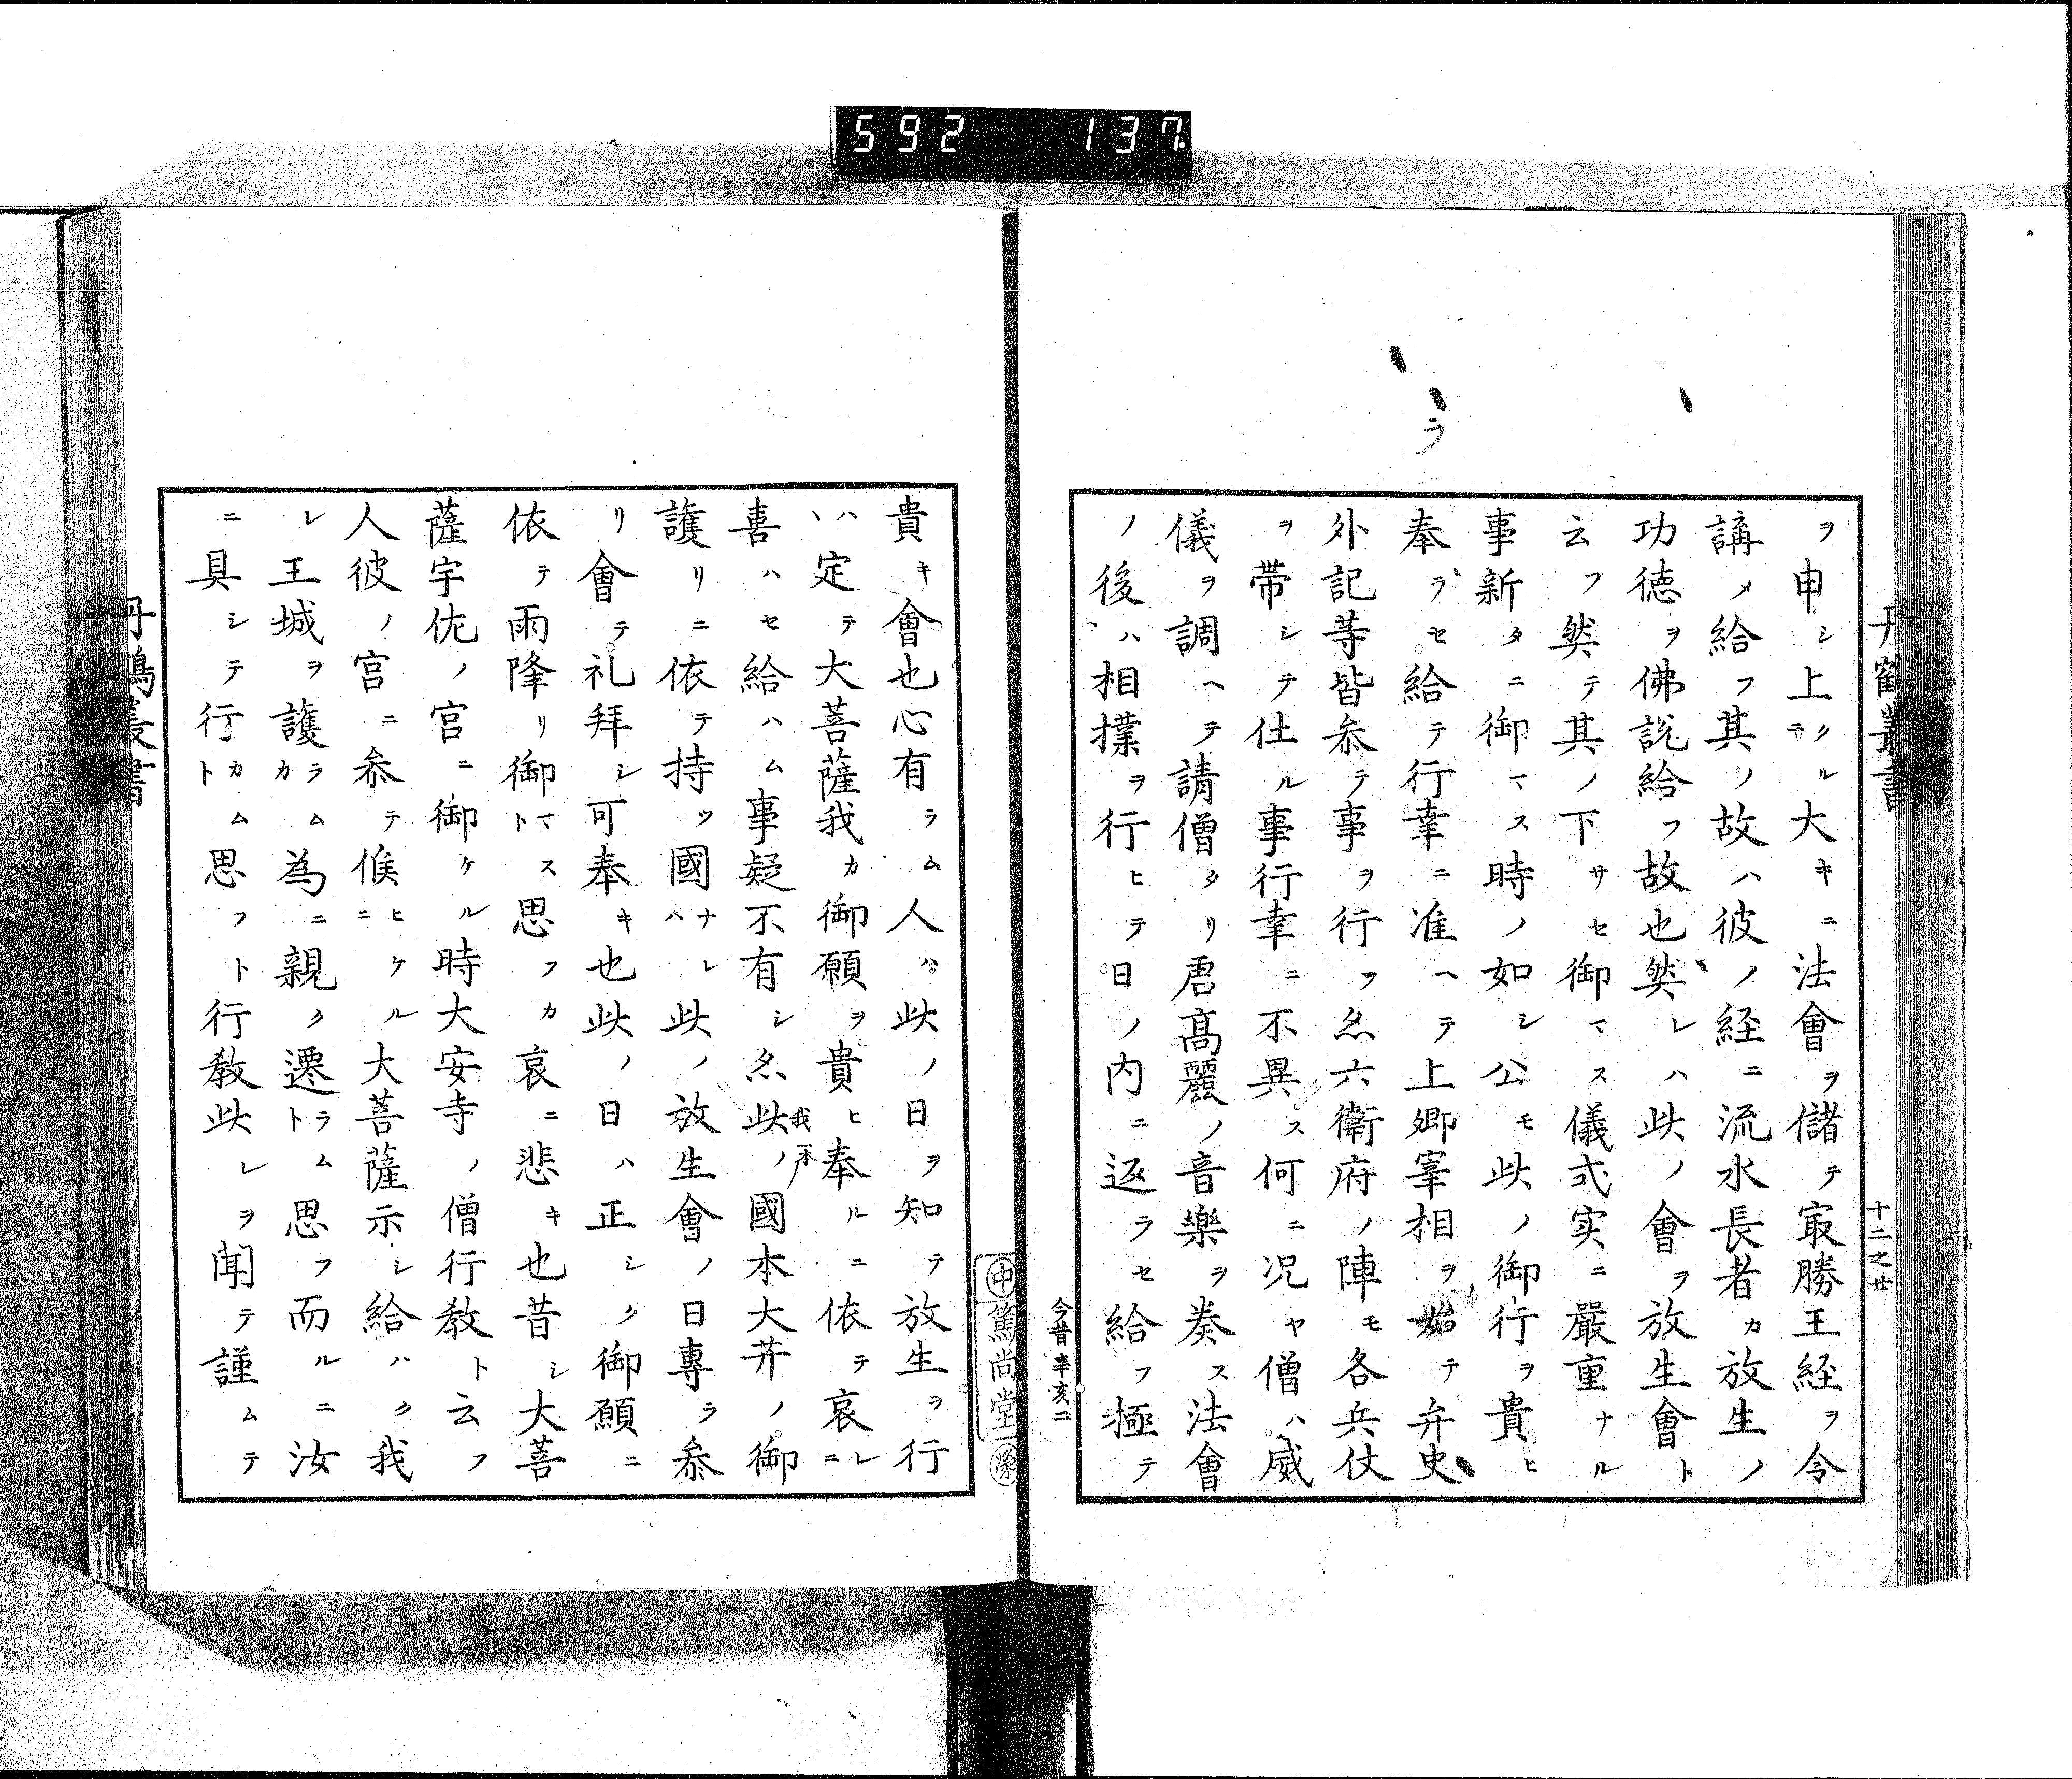 592 137
丹鶴叢書
十二之廿
ヲ申シ上クル大キニ法會ヲ儲テ冣勝王経ヲ令
講メ給フ其ノ故ハ彼ノ経ニ流水長者カ放生ノ
功徳ヲ佛説給フ故也然レハ此ノ會ヲ放生會ト
云フ然テ其ノ下サセ御マス儀式实ニ嚴重ナル
事新タニ御マス時ノ如シ公モ此ノ御行ヲ貴ヒ
奉ラセ給テ行幸ニ准ヘテ上卿宰相ヲ始テ弁史
外記等皆参テ事ヲ行フ亦六衛府ノ陣モ各兵仗
ヲ帯シテ仕ル事行幸ニ不異ス何ニ况ヤ僧ハ威
儀ヲ調ヘテ請僧タリ唐髙麗ノ音樂ヲ奏ス法會
ノ後ハ相撲ヲ行ヒテ日ノ内ニ返ラセ給フ極テ
ラ
今昔 辛亥二
中 篤尚堂 蔵
貴キ會也心有ラム人ハ此ノ日ヲ知テ放生ヲ行
ハヽ定テ大菩薩我カ御願ヲ貴ヒ奉ルニ依テ哀レニ
喜ハセ給ハム事疑不有シ亦此ノ國本大䒑ノ御
我一本
護リニ依テ持ツ國ナレハ此ノ放生會ノ日專ラ参
リ會テ礼拜シ可奉キ也此ノ日ハ正シク御願ニ
依テ雨降リ御マスト思フカ哀ニ悲キ也昔シ大菩
薩宇佐ノ宮ニ御ケル時大安寺ノ僧行教ト云フ
人彼ノ宮ニ参テ候ヒケルニ大菩薩示シ給ハク我
レ王城ヲ護ラムカ為ニ親ク遷ラムト思フ而ルニ汝
ニ具シテ行カムト思フト行教此レヲ聞テ謹ムテ
丹鶴叢書